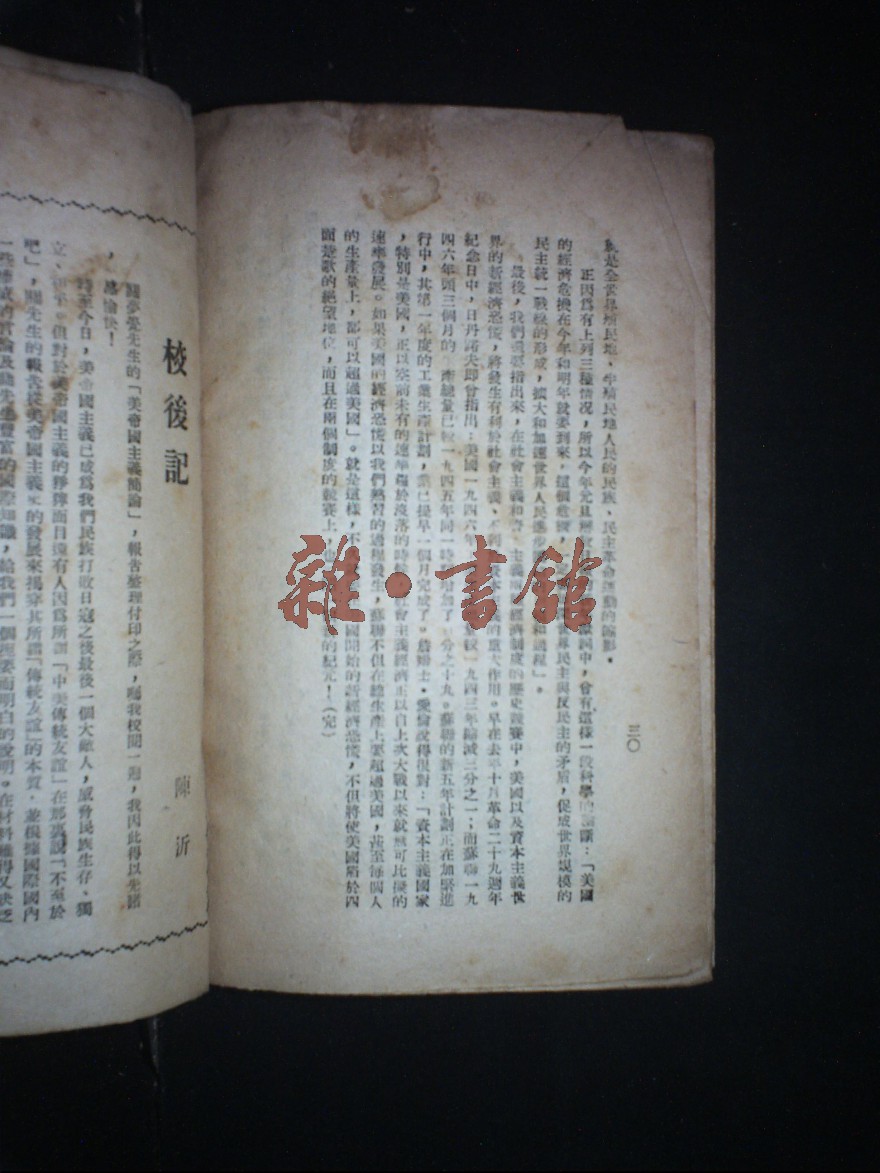 三〇
就是全世界殖民地、半殖民地人民的民族、民主革命運動的縮影。
正因爲有上列三種情况,所以今年元旦
詞中,會有這樣一段科學的
:「美國
的經濟危機在今年和明年就要到來,這個危機,
民主與反民主的矛盾,促成世界規模的
民主統一戰線的形成,擴大和加速世界人民進步
和過程」。
最後,我們還要指出來,在社會主義和資
主義兩
經濟制度的歷史競賽中,美國以及資本主義世
界的新經濟恐慌,將發生有利於社會主義、不利
的重大作用。早在去年十月革命二十九週年
紀念日中,日丹諾夫即曾指出:美國一九四六年
較一九四三年縮減三分之一;而蘇聯一九
四六年頭三個月的
產總量已較一九四五年同一時
增加了
分之十九。蘇聯的新五年計劃正在加緊進
行中,其第一年度的工業生產計劃,業已提早一個月完成了。詹姆士·愛倫說得很對:「資本主義國家
,特別是美國,正以空前未有的速率趨於沒落的時
社會主義經濟正以自上次大戰以來就無可比擬的
速率發展。如果美國的經濟恐慌以我們熟習的過程發生,蘇聯不但在總生產上要超過美國,甚至每個人
的生產量上,都可以超過美國」。就是這樣,不
國開始的新經濟恐慌,不但將使美國陷於四
面楚歌的絕望地位,而且在兩個制度的競賽上,也
的紀元!(完)
雜·書館
校後記
陳沂
關夢覺先生的「美帝國主義簡論」,報告整理付印之際,囑我校閱一遍,我因此得以先睹
,感愉快!
時至今日,美帝國主義已成爲我們民族打敗日寇之後最後一個大敵人,威脅民族生存、獨
立、和平。但對於美帝國主義的猙獰面目還有人因爲所謂「中美傳統友誼」在那裏說「不至於
吧」,關先生的報告從美帝國主義
的發展來揭穿其所謂「傳統友誼」的本質,並根據國際國內
一些
的言論及關先生豐富的國際知識,給我們一個扼要而明白的說明。在材料難得又缺乏